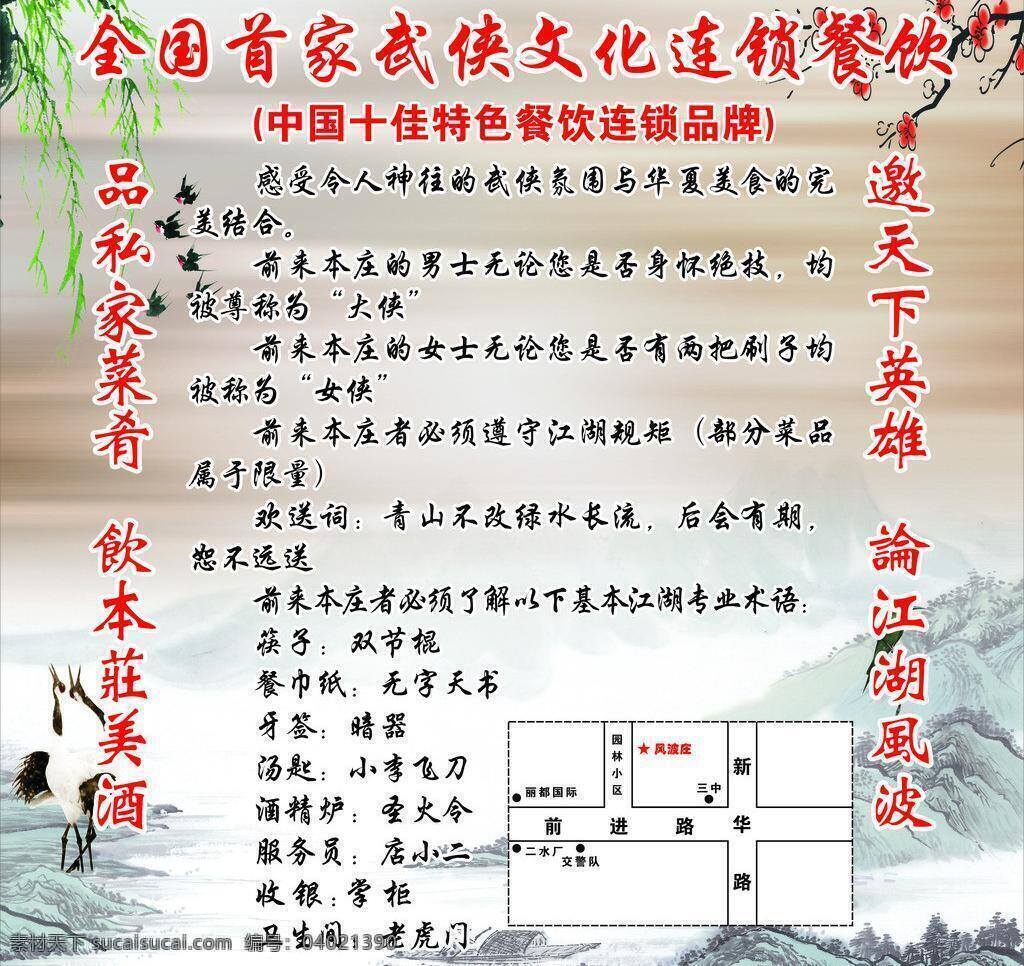 全国首家武侠文化连锁餐饮
(中国十佳特色餐饮连锁品牌)
品私家菜肴 飲本莊美酒
邀天下英雄 論江湖風波
感受令人神往的武侠氛围与华夏美食的完
美结合。
前来本庄的男士无论您是否身怀绝技，均
被尊称为“大侠”
前来本庄的女士无论您是否有两把刷子均
被称为“女侠”
前来本庄者必须遵守江湖规矩（部分菜品
属于限量）
欢送词：青山不改绿水长流，后会有期，
恕不远送
前来本庄者必须了解以下基本江湖专业术语：
筷子：双节棍
餐巾纸：无字天书
牙签：暗器
汤匙：小李飞刀
酒精炉：圣火令
服务员：店小二
收银：掌柜
卫生间：老虎门
园林小区
★风波庄
新华路
丽都国际
三中
前进路
二水厂
交警队
素材天下 sucaisucai.com 编号：04021390